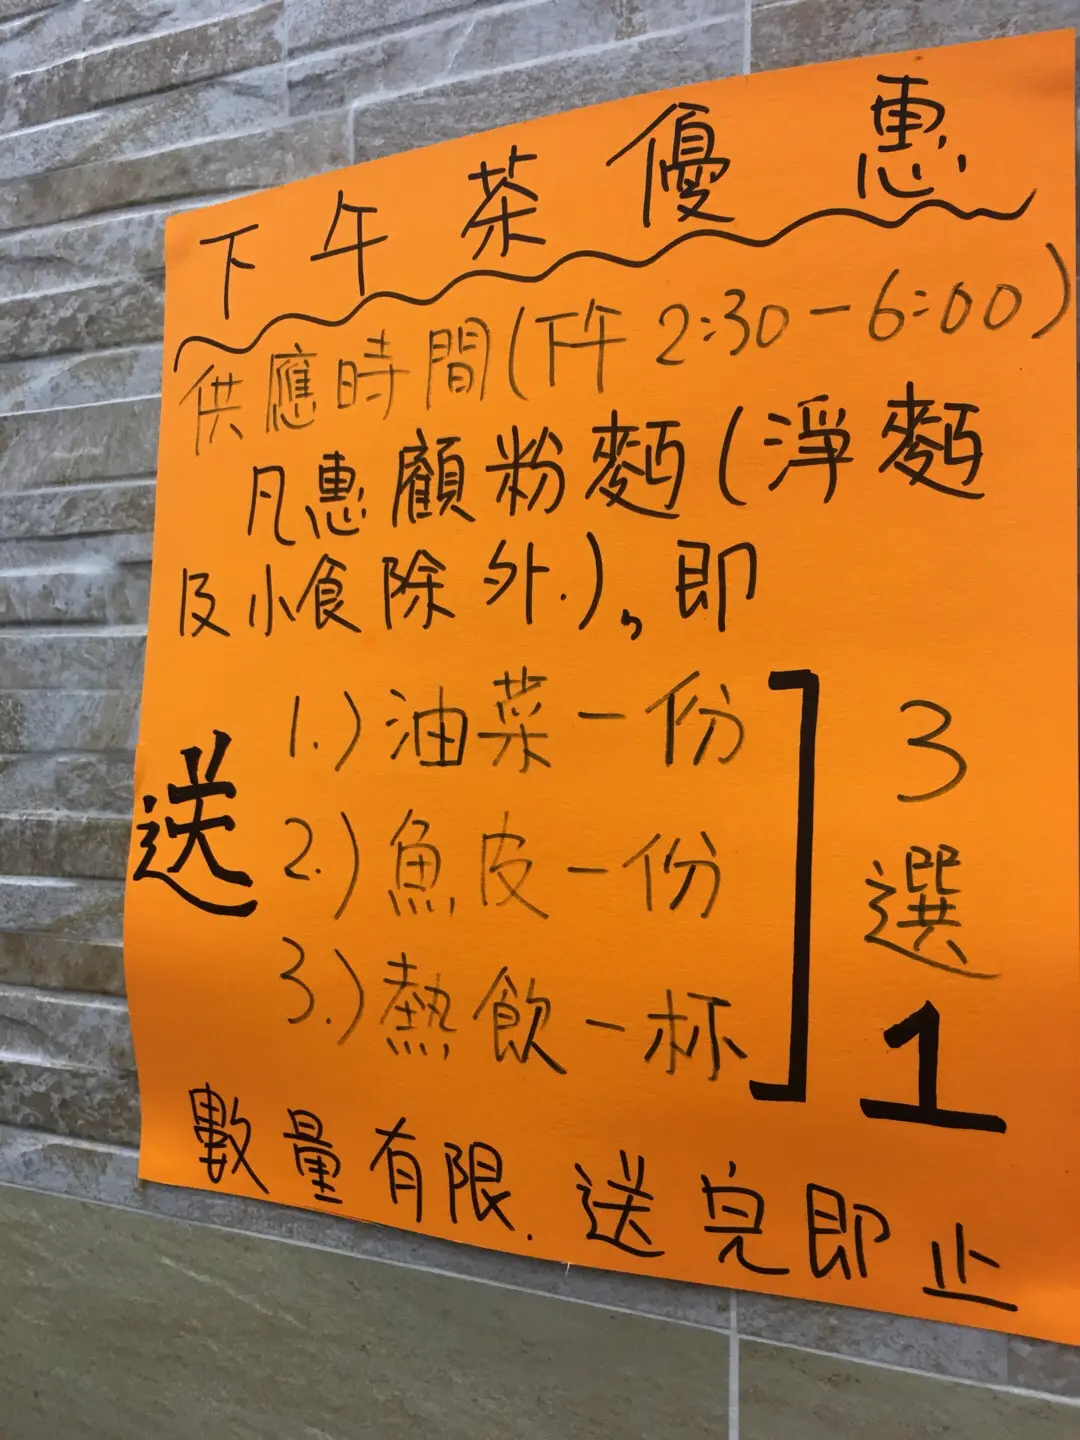 下午茶優惠
供應時間(下午 2:30-6:00)
凡惠顧粉麵(淨麵
及小食除外.),即
送
1.)油菜一份
2.)魚皮一份
3.)熱飲一杯
3選1
數量有限.送完即止